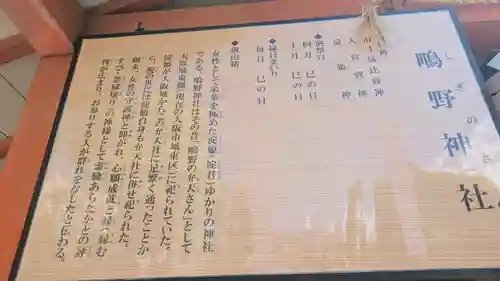 鴫野神社
しぎの
御祭神
市杵島比売神
大宮賣神
淀姫神
◆例祭日
四月 巳の日
十月 巳の日
◆縁日まいり
毎月 巳の日
◆御由緒
女性として栄華を極めた淀姫(淀君)ゆかりの神社
である。鴫野神社はその昔「鴫野の弁天さん」として
大阪城東側(現在の大阪市城東区)に祀られていた。
淀姫が大阪城からこの弁天社に足繁く通ったことか
ら、後の世には淀姫自身も弁天社に併せ祀られた。
爾来、女性の守護神と仰がれ、心願成就と縁(縁む
すび・悪縁切り)の神様として霊験あらたかとの評
判が広まり、お参りする人が群れをなしたと伝わる。